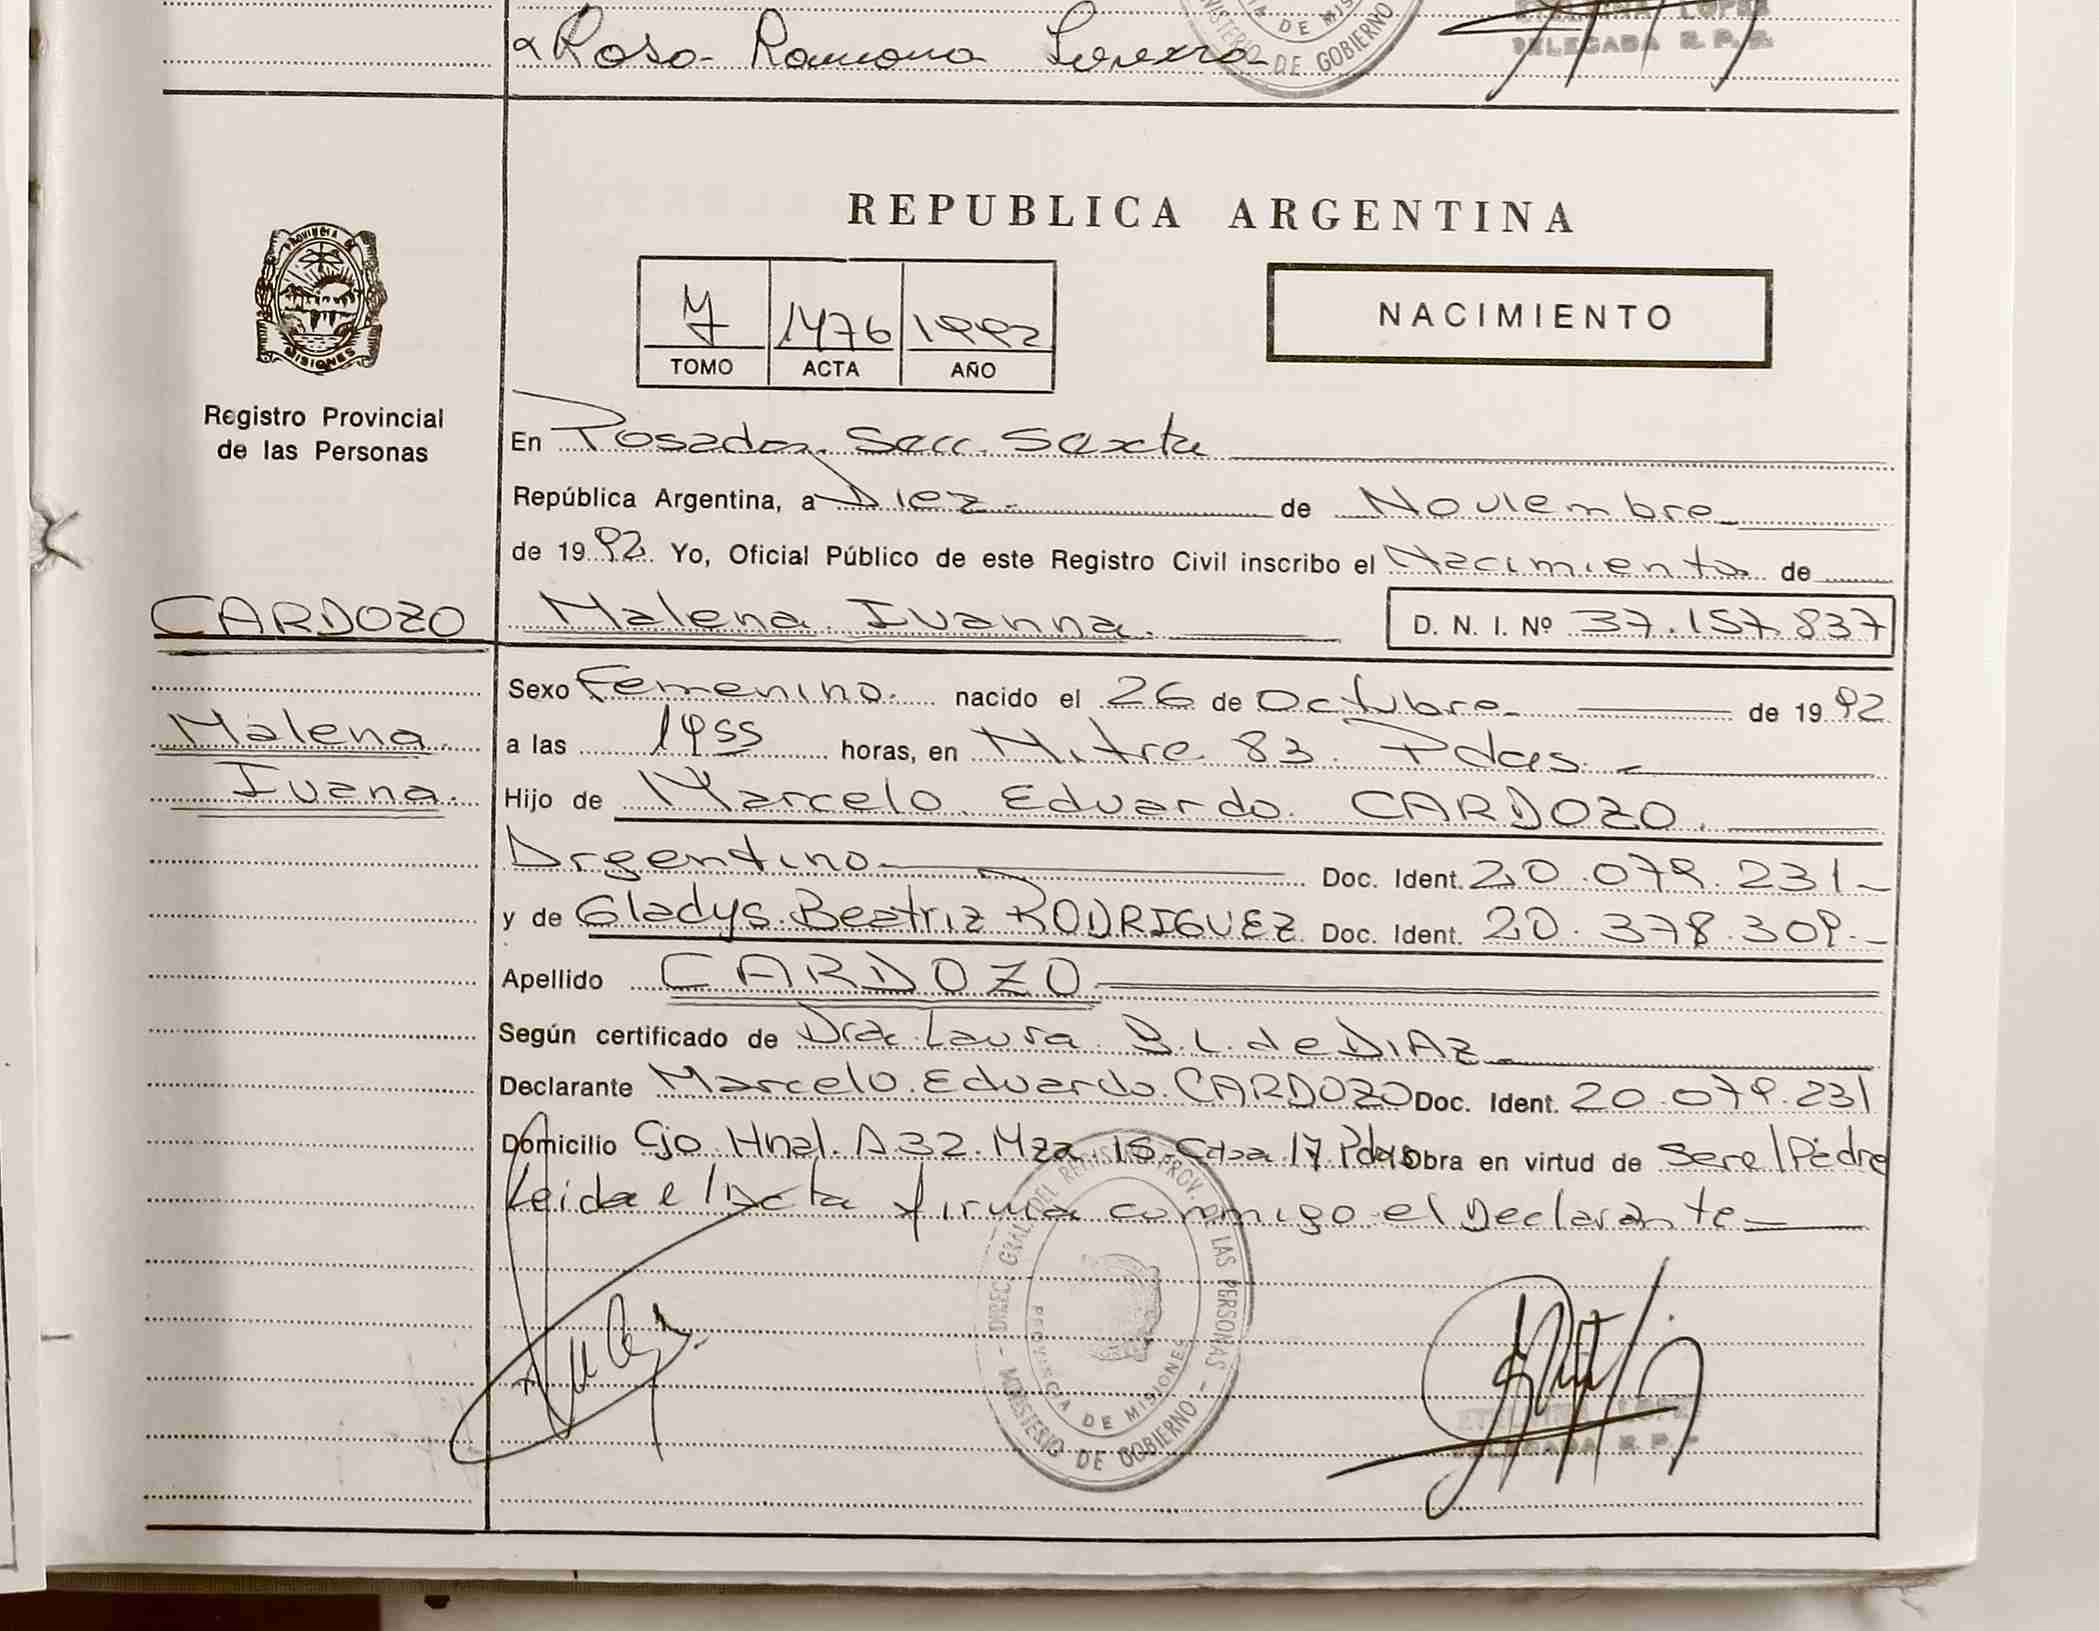 Rosa Ramona
DE MIS
MINISTERIO DE GOBIERNO
LOPEZ
DELEGADA R. P. P.
PROVINCIA DE
MISIONES
Registro Provincial
de las Personas
REPUBLICA ARGENTINA
1476 1992
TOMO ACTA AÑO
NACIMIENTO
En Posadas Secc. Sexta
República Argentina, a Diez de Noviembre
de 1992. Yo, Oficial Público de este Registro Civil inscribo el Nacimiento de
CARDOZO
Malena Ivanna. D. N. I. Nº 37.157.837
Sexo Femenino. nacido el 26 de Octubre de 1992
Malena
Ivana.
a las 1955 horas, en Mitre 83. Pdas.
Hijo de Marcelo Eduardo CARDOZO.
Argentino Doc. Ident. 20.079.231
y de Gladys Beatriz RODRIGUEZ Doc. Ident. 20.378.309.
Apellido CARDOZO
Según certificado de Dra. Laura B. L. de DIAZ
Declarante Marcelo Eduardo CARDOZO Doc. Ident. 20.079.231
Domicilio Cjo. Hnal. A32. Mza. 15 Casa 17 Pdas Obra en virtud de Ser el Padre
Leida el Acta firma conmigo el Declarante
DIREC. GRAL. DEL REGISTRO PROV. DE LAS PERSONAS - MINISTERIO DE GOBIERNO -
PROVINCIA DE MISIONES
ETELVINA LOPEZ
DELEGADA R. P. P.